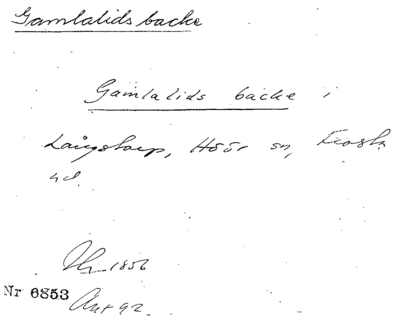 Gamlalids backe
Gamlalids backe i
Långstorp, Höör sn, Frosta
hd.
1856
Nr 6853
Ant 92.